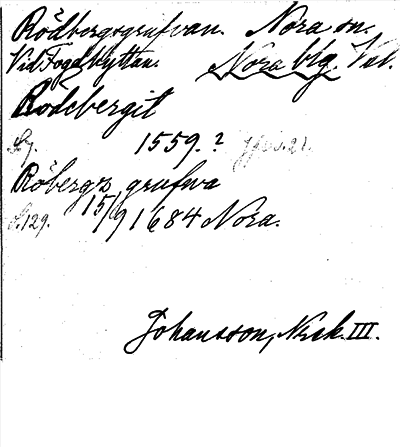 Rödbergsgrufvan. Nora sn.
Vid Fogdhyttan. Nora blg. Vstl.
Rödebergit
1559. ?
Röbergz grufwa
s. 129. 15/9 1684 Nora.
Johansson, Nbsk. III.